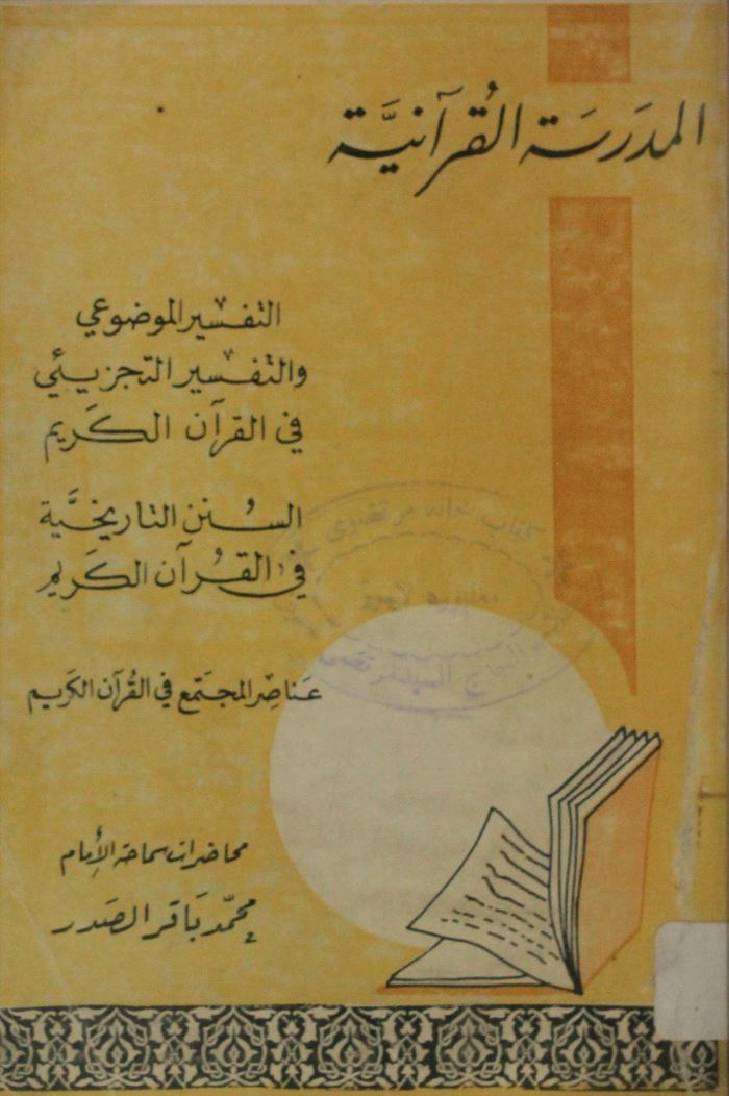 المدرَسَة القُرآنيَّة
التفسير الموضوعي
والتفسير التجزيئي
في القرآن الكَريم
السُنن التاريخيَّة
في القُرآن الكَريم
عَناصِر المجتَمع في القُرآن الكَريم
محاضرات سماحة الأمام
محمّد بَاقر الصَدر
كتابخانه